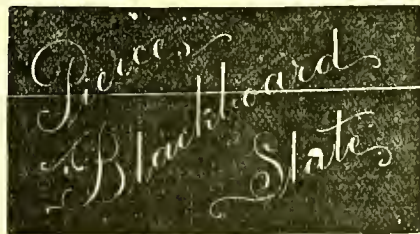 Pierce's
Blackboard
Slate